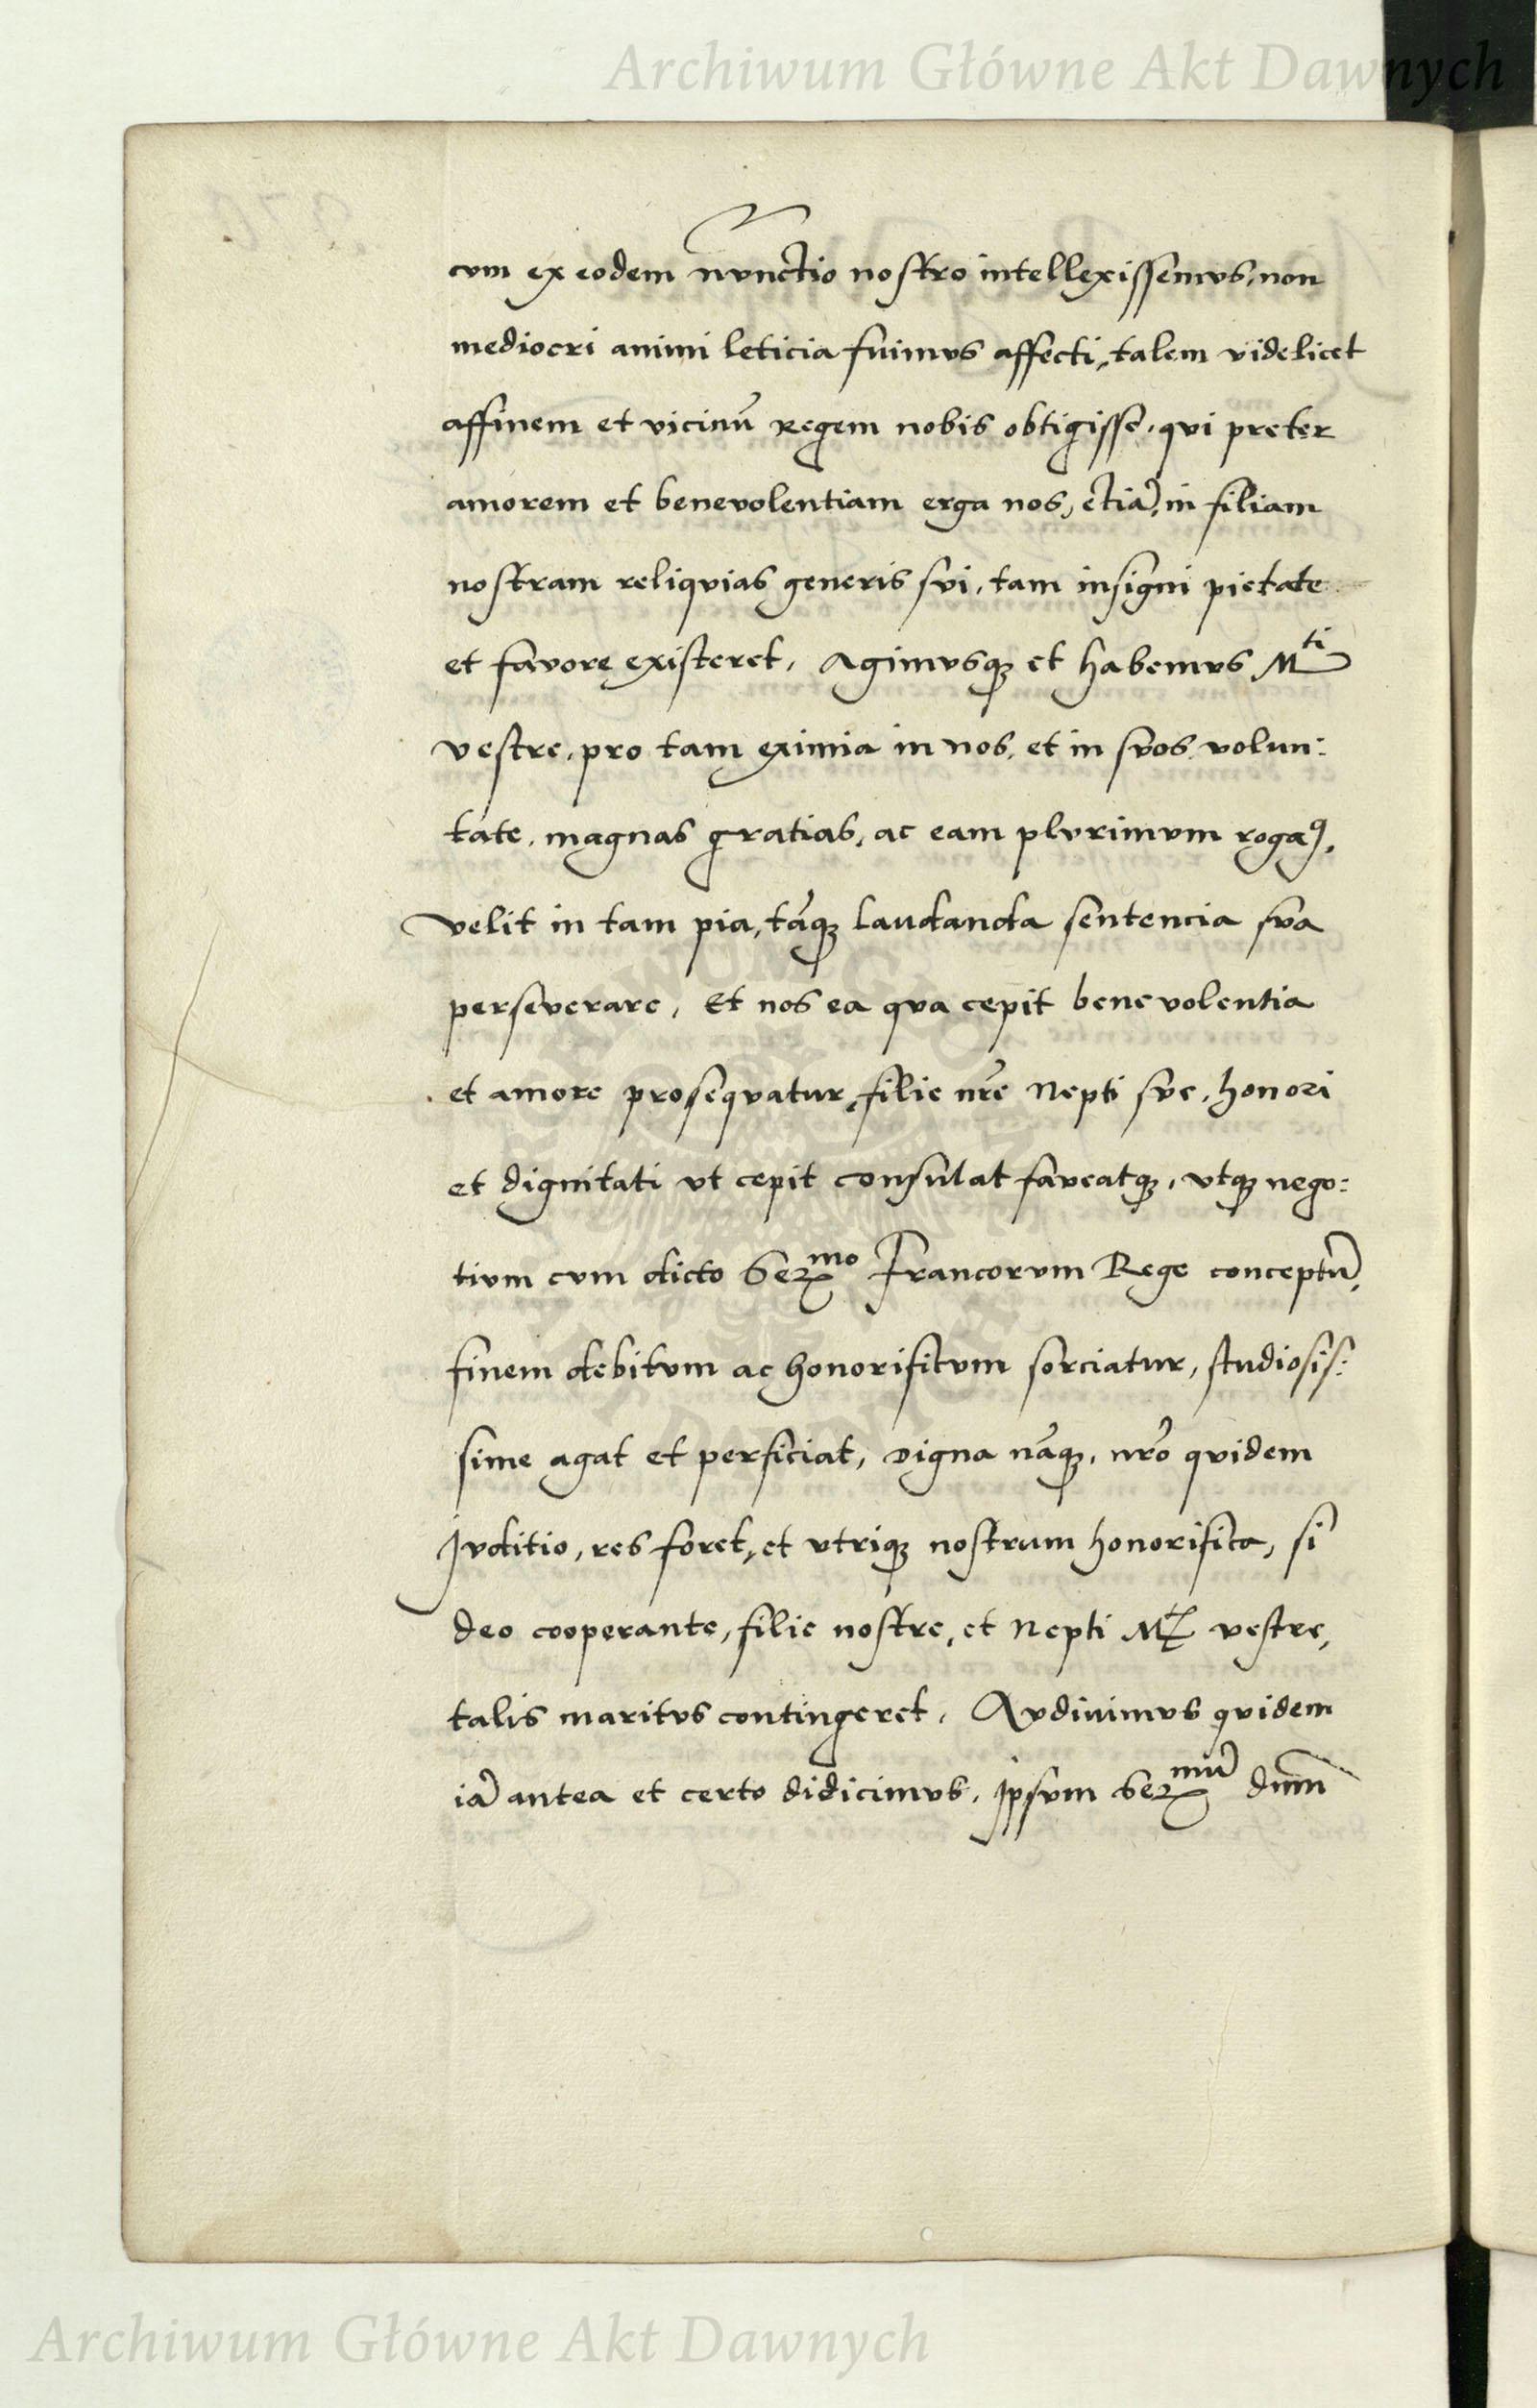 Archiwum Główne Akt Dawnych
cvm ex eodem nvnctio nostro intellexissemvs, non
mediocri animi leticia fuimvs affecti, talem videlicet
affinem et vicinū Regem nobis obtigisse, qvi preter
amorem et benevolentiam erga nos, etiā, in filiam
nostram reliqvias generis svi, tam insigni pietate
et favore existeret, Agimvsqꝫ et habemvs Mᵗⁱ
vestre, pro tam eximia in nos, et in svos, volun:
tate, magnas gratias, ac eam plvrimvm rogaꝰ,
velit in tam pia, tāqꝫ laudanda sentencia sva
perseverare, Et nos ea qva cepit benevolentia
et amore proseqvatur, filie nr̄e Nepti sve, honori
et dignitati vt cepit consulat faveatqꝫ, vtqꝫ nego:
tivm cvm dicto Serᵐᵒ Francorvm Rege conceptū,
finem debitvm ac honorificvm sorciatur, studiosis:
sime agat et perficiat, Digna nāqꝫ, nr̄o qvidem
Jvditio, res foret, et vtriqꝫ nostrum honorifica, si
deo cooperante, filie nostre, et Nepti Mᵗⁱˢ vestre,
talis maritvs contingeret, Avdiuimvs qvidem
iā antea et certo didicimvs, Ipsvm Serᵐᵘ̄ dnm̄
Archiwum Główne Akt Dawnych